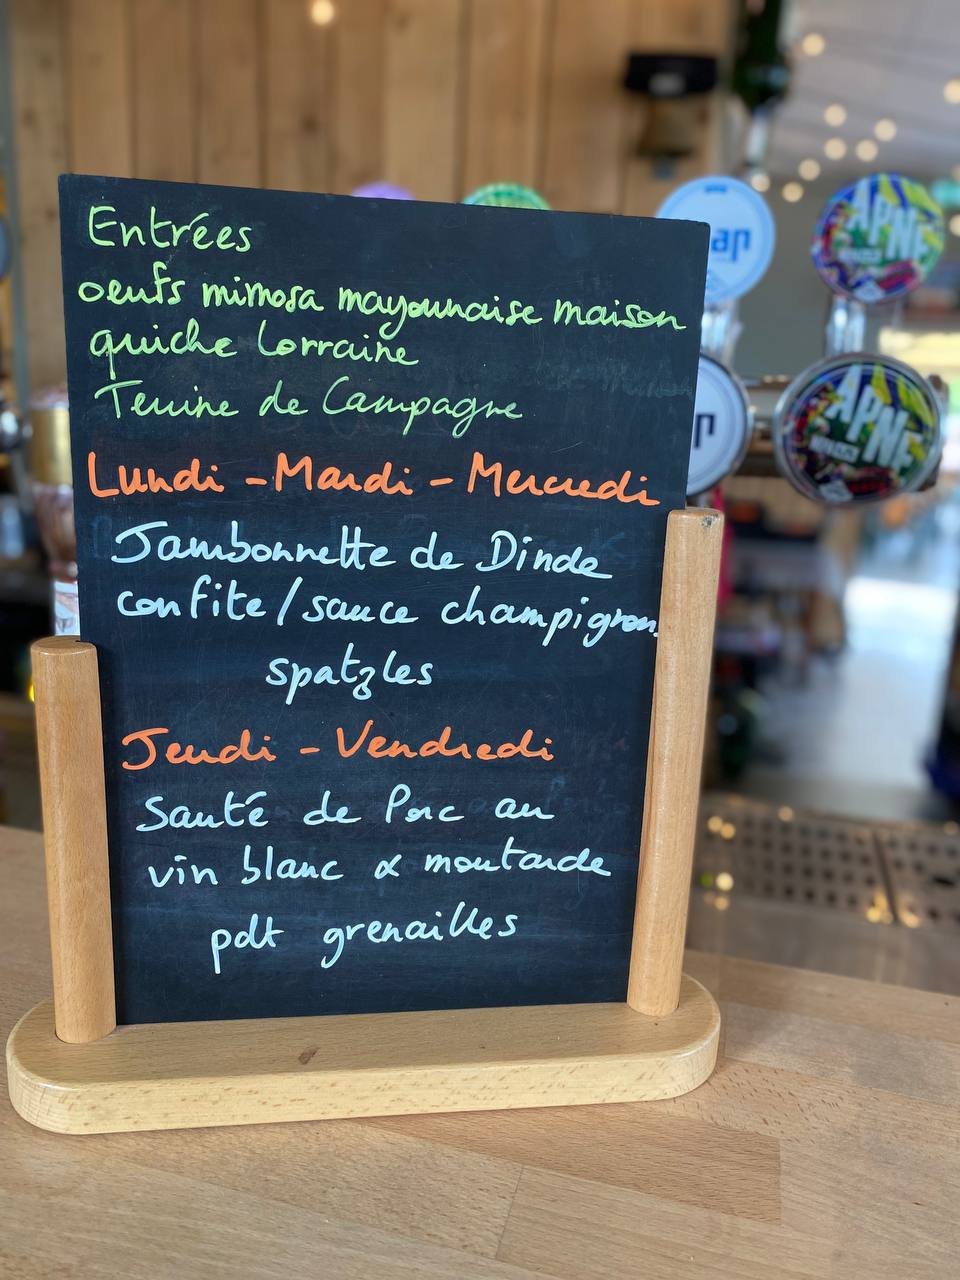 Entrées
oeufs mimosa mayounaise maison
quiche Lorraine
Terrine de Campagne
Lundi - Mardi - Mercredi
Jambonnette de Dinde
confite / sauce champignon
spatzles
Jeudi - Vendredi
Sauté de Porc au
vin blanc & moutarde
pdt grenailles
APNE
APNE